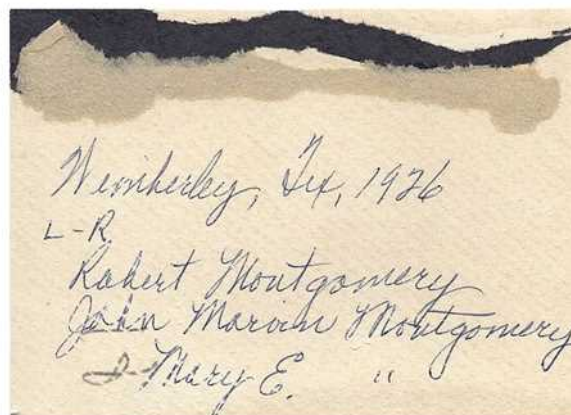 Wimberley, Tex, 1926
L-R
Robert Montgomery
John Marvin Montgomery
Mary E. "